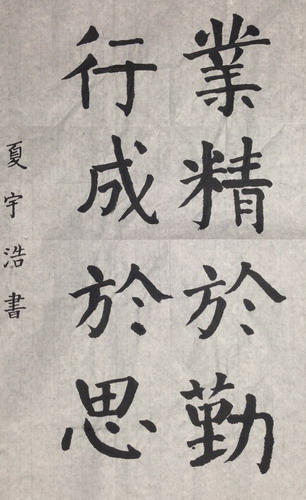 業精於勤
行成於思
夏宇浩書